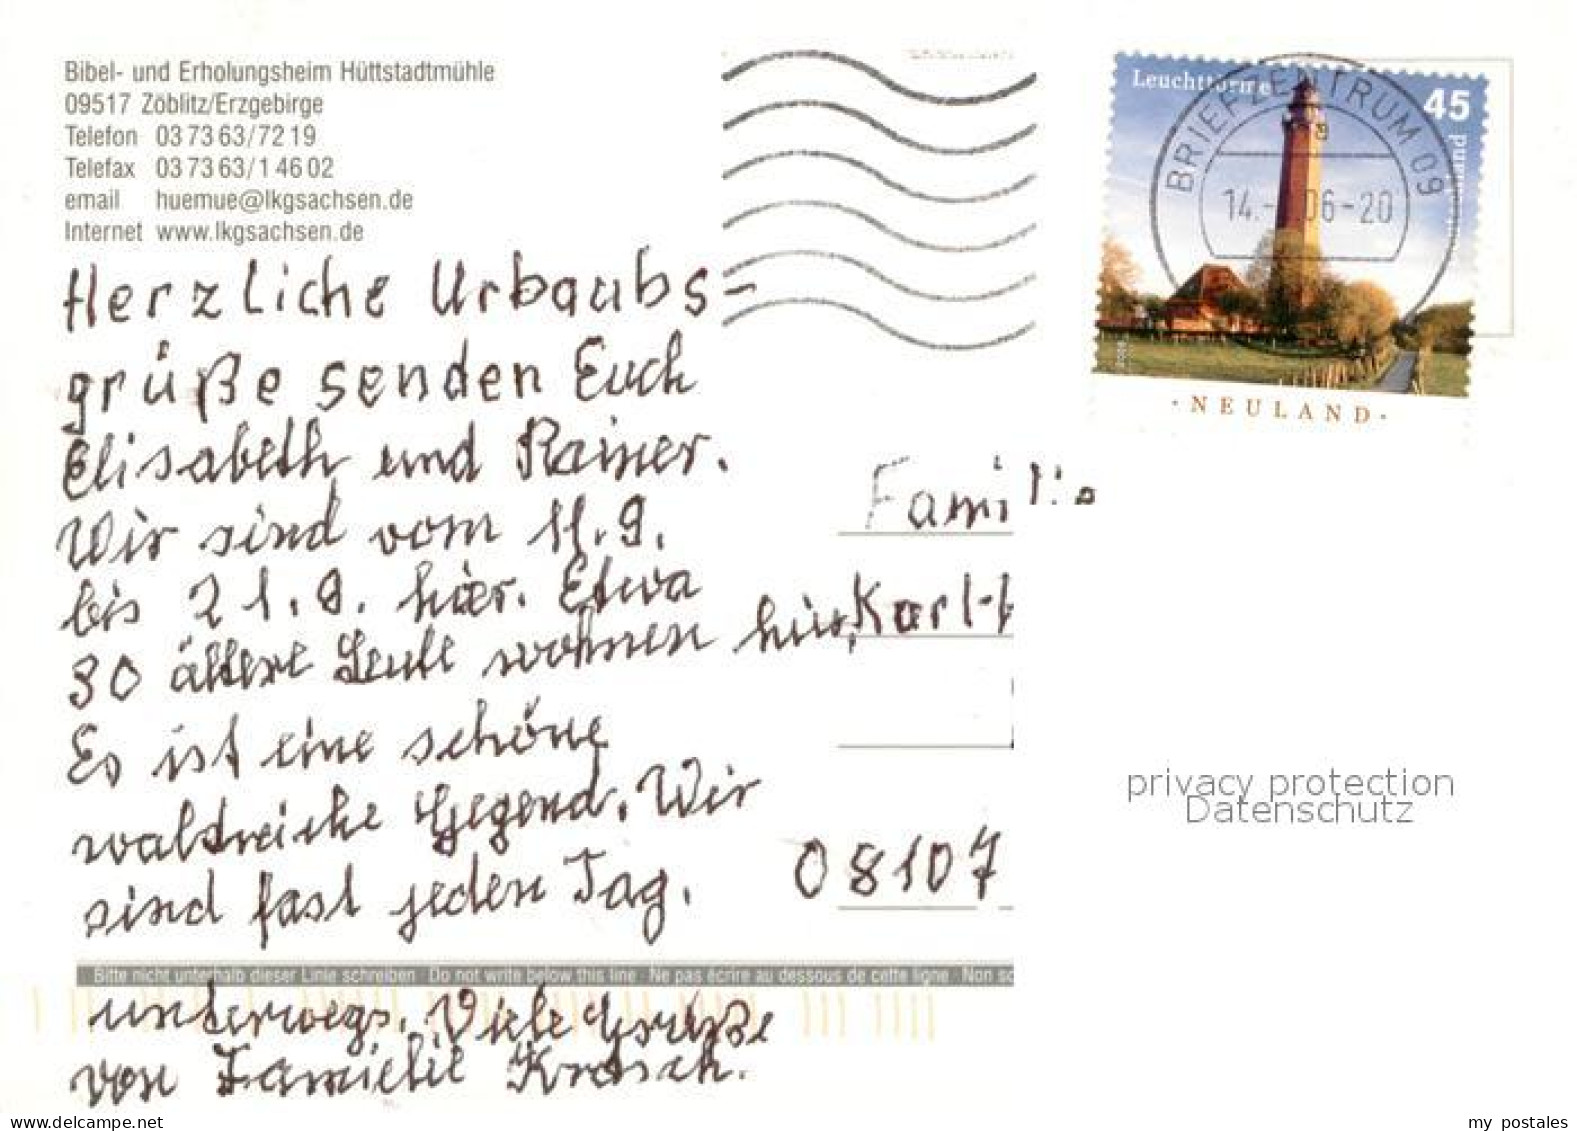 Bibel- und Erholungsheim Hüttstadtmühle
09517 Zöblitz/Erzgebirge
Telefon 03 73 63/72 19
Telefax 03 73 63/1 46 02
email huemue@lkgsachsen.de
Internet www.lkgsachsen.de
Herzliche Urlaubs-
grüße senden Euch
Elisabeth und Rainer.
Wir sind vom 11.9.
bis 21.9. hier. Etwa
30 ältere Leute wohnen hier.
Es ist eine schöne
waldreiche Gegend. Wir
sind fast jeden Tag.
Bitte nicht unterhalb dieser Linie schreiben Do not write below this line Ne pas écrire au dessous de cette ligne Non sc
unterwegs. Viele Grüße
von Familie
Leuchttürme
45
BRIEFZENTRUM 09
a
14.- 06-20
·NEULAND·
Familie
Karl-H
08107
privacy protection
Datenschutz
delcampe.net
my postales